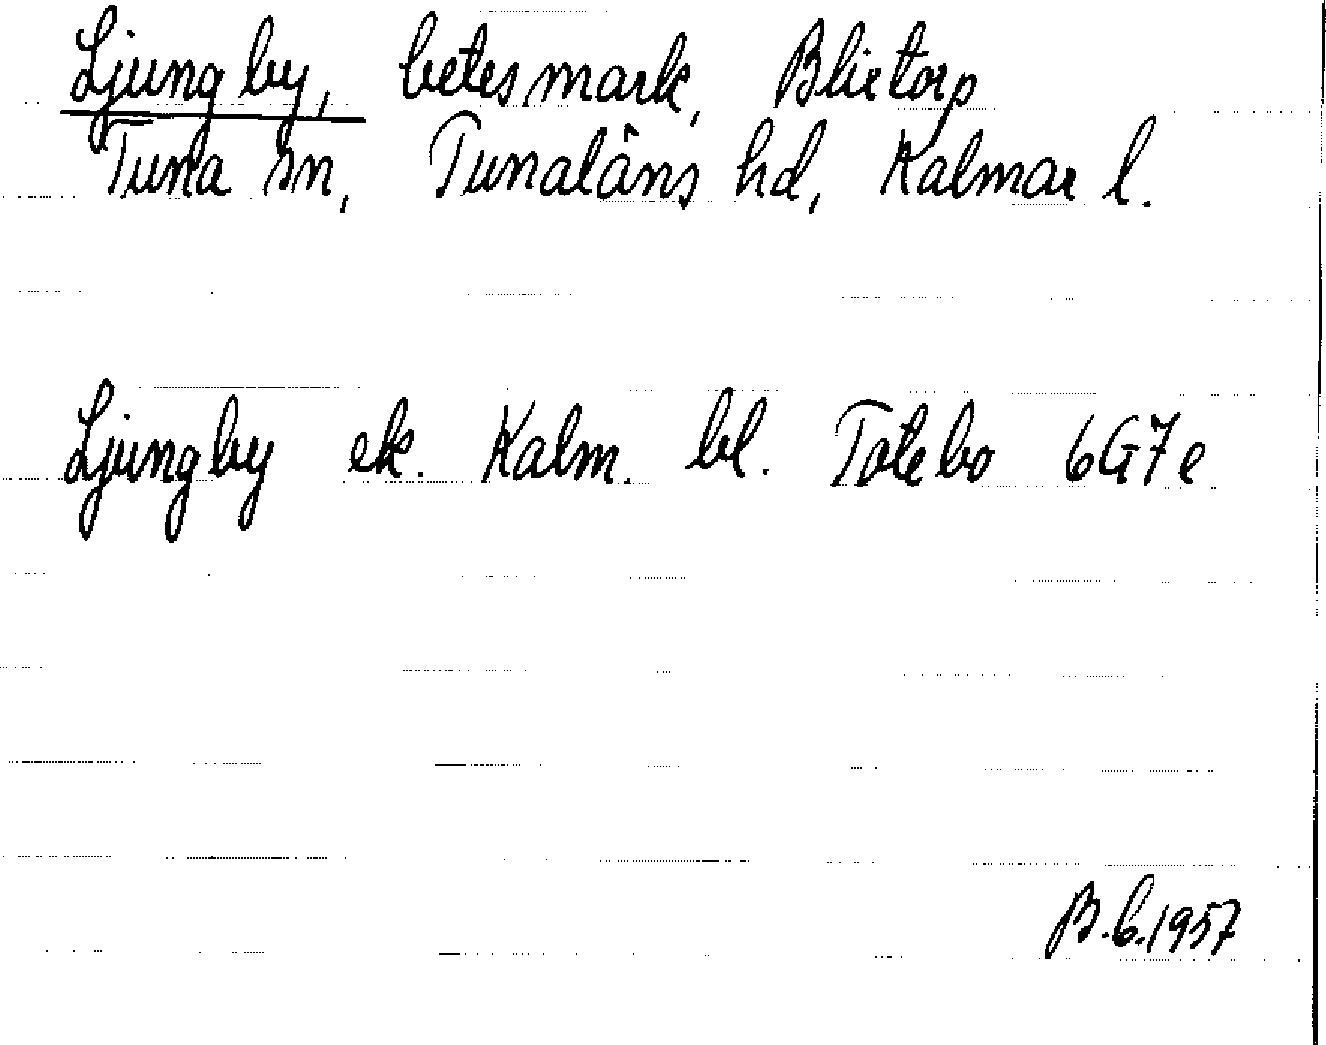 Ljungby, betesmark, Blietorp
Tuna sn, Tunaläns hd, Kalmar l.
Ljungby ek. Kalm. bl. Totebo 6G7e
B.b.1957